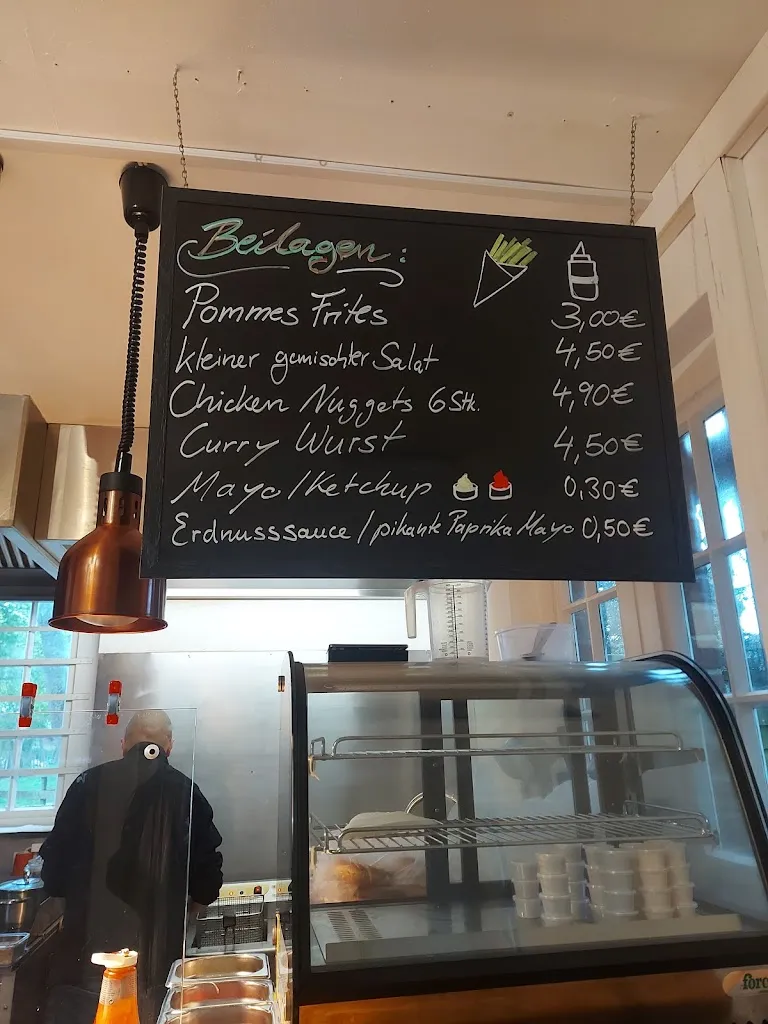 Beilagen:
Pommes Frites 3,00€
kleiner gemischter Salat 4,50€
Chicken Nuggets 6 Stk. 4,90€
Curry Wurst 4,50€
Mayo/Ketchup 0,30€
Erdnusssauce / pikante Paprika Mayo 0,50€